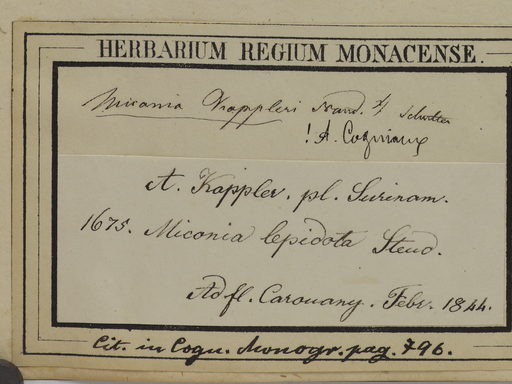 HERBARIUM REGIUM MONACENSE.
Miconia Kappleri Naud. &
! A. Cogniaux
A. Kappler. pl. Surinam.
1675. Miconia lepidota Steud.
Ad fl. Carouany. Febr. 1844.
Cit. in Cogn. Monogr. pag. 796.